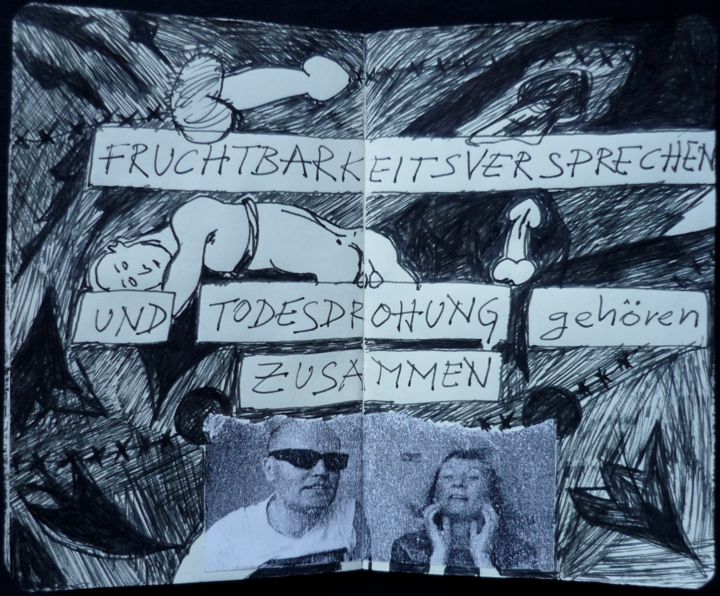 FRUCHTBARKEITSVERSPRECHEN
UND TODESDROHUNG gehören
ZUSAMMEN